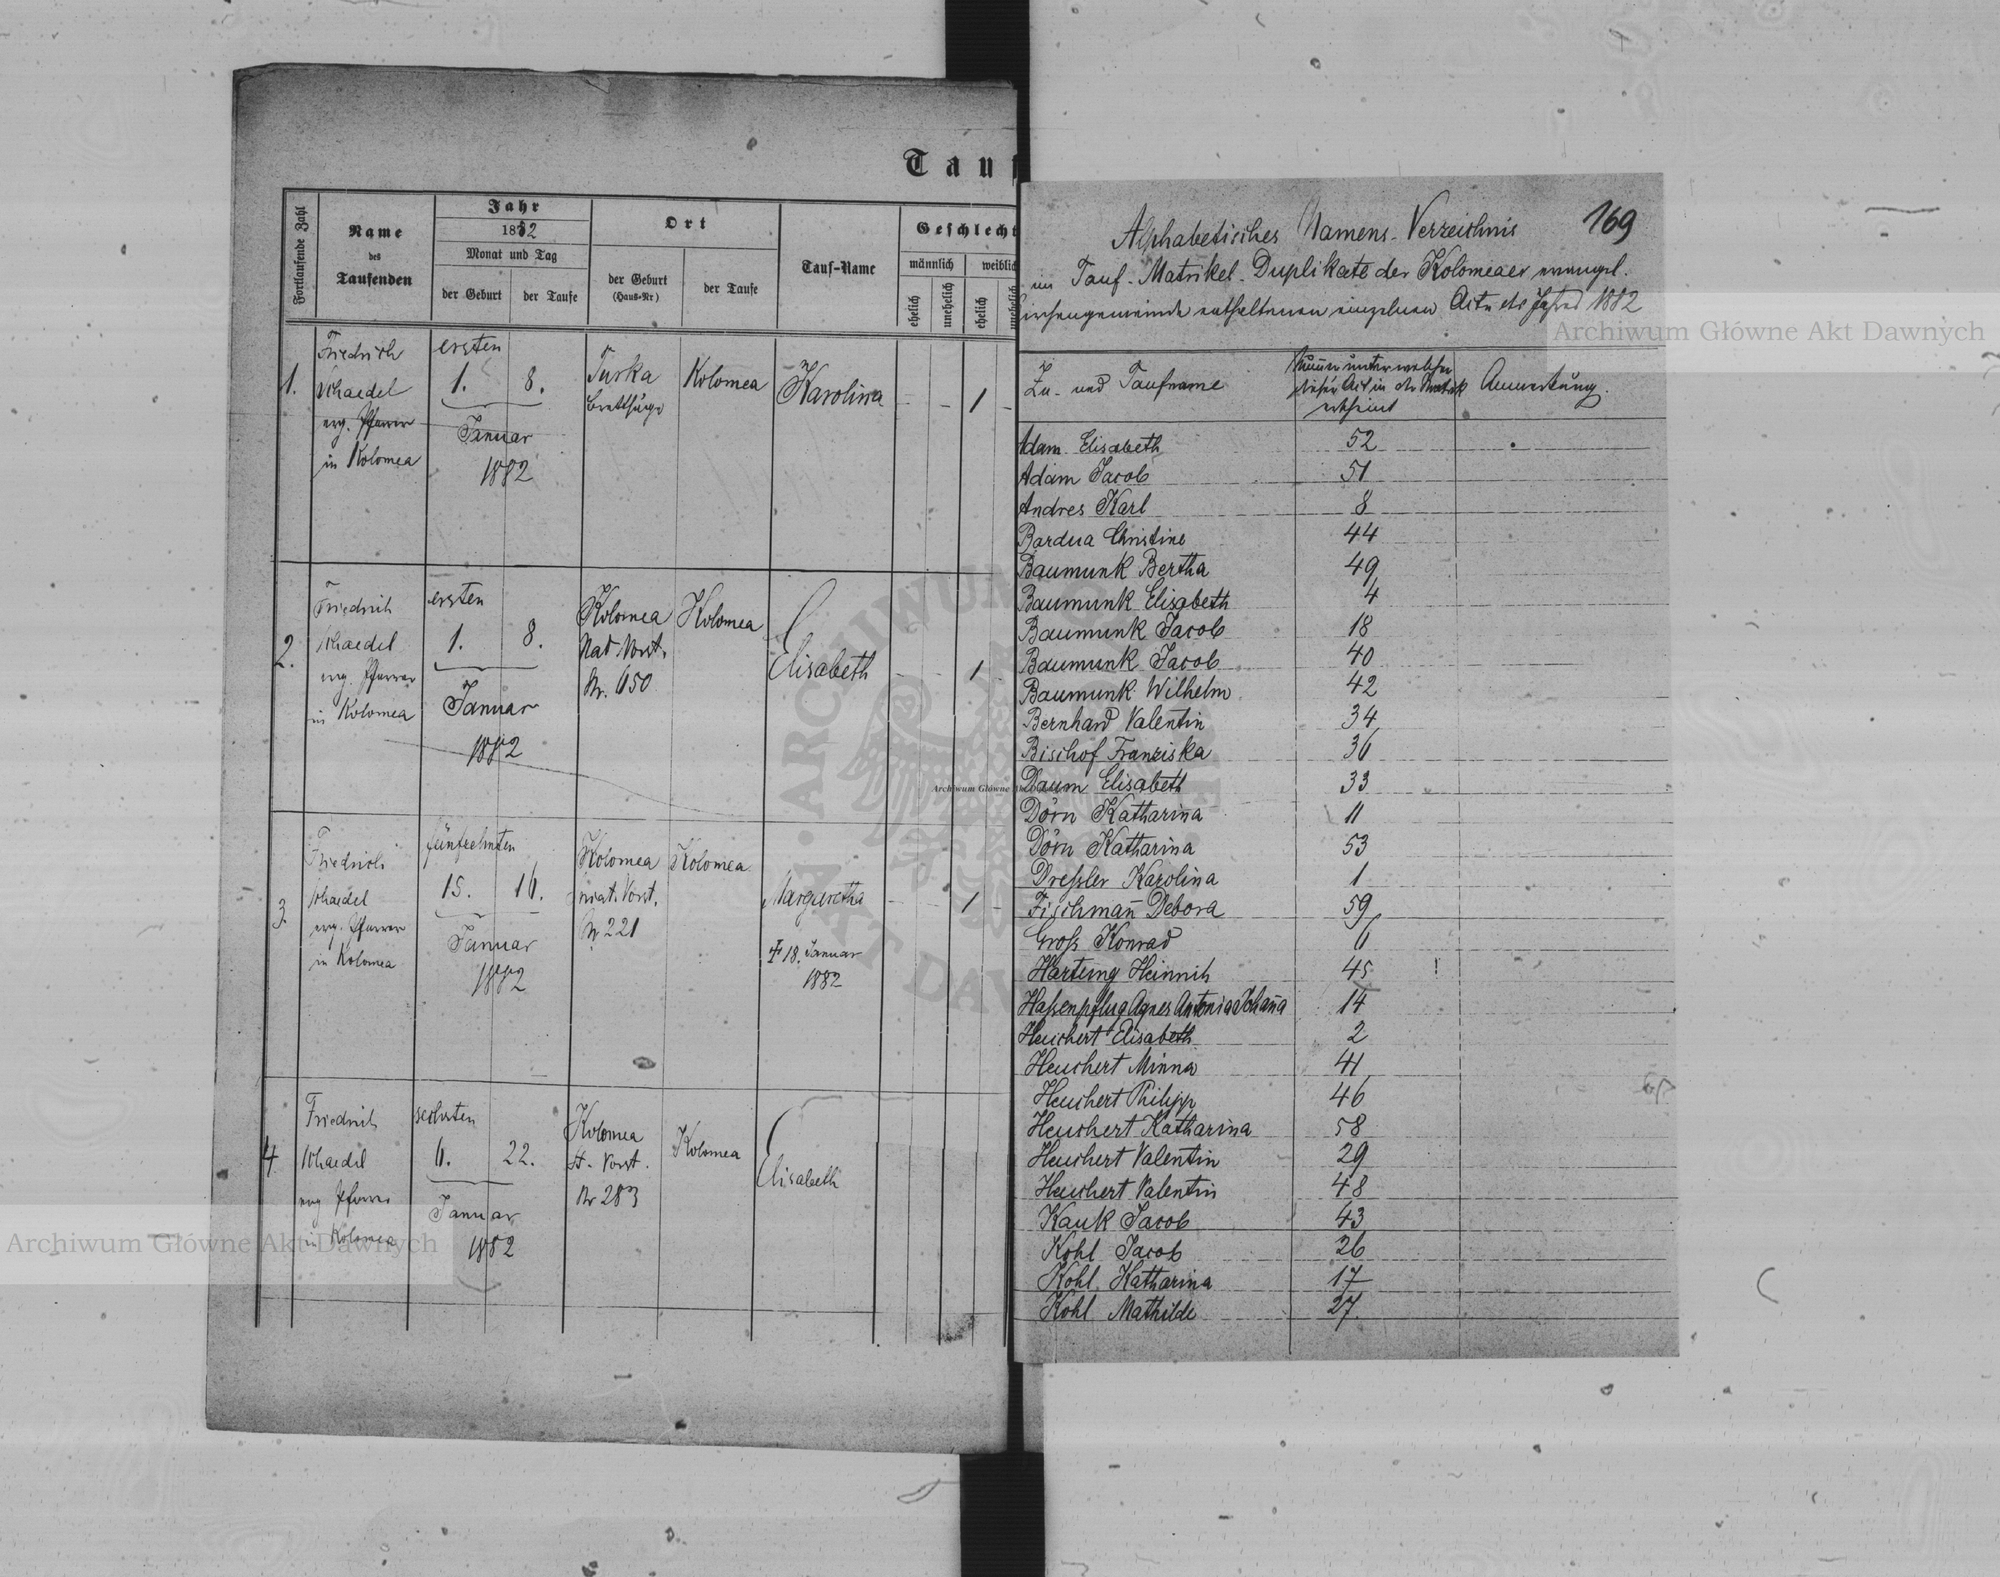 Tauf
Fortlaufende Zahl
Name
des
Taufenden
Jahr
1882
Monat und Tag
der Geburt
der Taufe
Ort
der Geburt
(Haus-Nr)
der Taufe
Tauf-Name
Geschlecht
männlich
weiblich
ehelich
unehelich
ehelich
unehelich
1.
Friedrich
Schaedel
evg. Pfarrer
in Kolomea
ersten
1. 8.
Januar
1882
Turka
Brettsäge
Kolomea
Karolina
- - 1 -
2.
Friedrich
Schaedel
evg. Pfarrer
in Kolomea
ersten
1. 8.
Januar
1882
Kolomea
Nad Vorst.
Nr. 650
Kolomea
Elisabeth
- - 1 -
3.
Friedrich
Schaedel
evg. Pfarrer
in Kolomea
fünfzehnten
15. 16.
Januar
1882
Kolomea
Vorst.
Nr 221
Kolomea
Margaretha
† 18. Januar
1882
- - 1 -
4.
Friedrich
Schaedel
evg Pfarrer
in Kolomea
sechsten
6. 22.
Januar
1882
Kolomea
Vorst.
Nr 283
Kolomea
Elisabeth
169
Alphabetisches Namens-Verzeichnis
im Tauf-Matrikel-Duplikate der Kolomeaer evangel.
Kirchengemeinde enthaltenen einzelnen Acte des Jahres 1882
Zu- und Taufname
Numer unter welcher
dieser Act in der Matrik
erscheint
Anmerkung.
Adam Elisabeth 52
Adam Jacob 51
Andres Karl 8
Bardua Christine 44
Baumunk Bertha 49
Baumunk Elisabeth 4
Baumunk Jacob 18
Baumunk Jacob 40
Baumunk Wilhelm 42
Bernhard Valentin 34
Bischof Franziska 36
Daum Elisabeth 33
Dörn Katharina 11
Dörn Katharina 53
Dreßler Karolina 1
Fischmañ Debora 59
Groß Konrad 6
Hartung Heinrich 45
Haßenpflug Agnes Antonia Johaña 14
Heuchert Elisabeth 2
Heuchert Minna 41
Heuchert Philipp 46
Heuchert Katharina 58
Heuchert Valentin 29
Heuchert Valentin 48
Kauk Jacob 43
Kohl Jacob 26
Kohl Katharina 17
Kohl Mathilde 27.
Archiwum Główne Akt Dawnych
Archiwum Główne Akt Dawnych